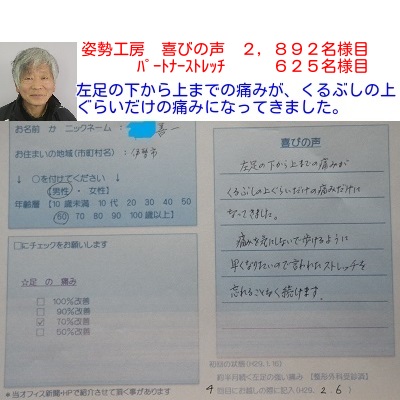 姿勢工房　喜びの声　２，８９２名様目
ﾊﾟｰﾄﾅｰｽﾄﾚｯﾁ　　　６２５名様目
左足の下から上までの痛みが、くるぶしの上
ぐらいだけの痛みになってきました。
お名前 か ニックネーム： 喜一
お住まいの地域(市町村名)：伊勢市
↓ ○を付けてください ↓
（男性 ・ 女性）
年齢層 【10歳未満 10代 20 30 40 50
60 70 80 90 100歳以上】
□にチェックをお願いします
☆足 の 痛み
□ 100%改善
□ 90%改善
☑ 70%改善
□ 50%改善
＊当オフィス新聞・HPで紹介させて頂く事があります
喜びの声
左足の下から上までの痛みが
くるぶしの上ぐらいだけの痛みだけに
なってきました。
痛みを気にしないで歩けるように
早くなりたいので言われたストレッチを
忘れることなく続けます。
初回の状態(H29.1.16)
約半月続く左足の強い痛み 【整形外科受診済】
4 回目にお越しの際に記入(H29. 2. 6)